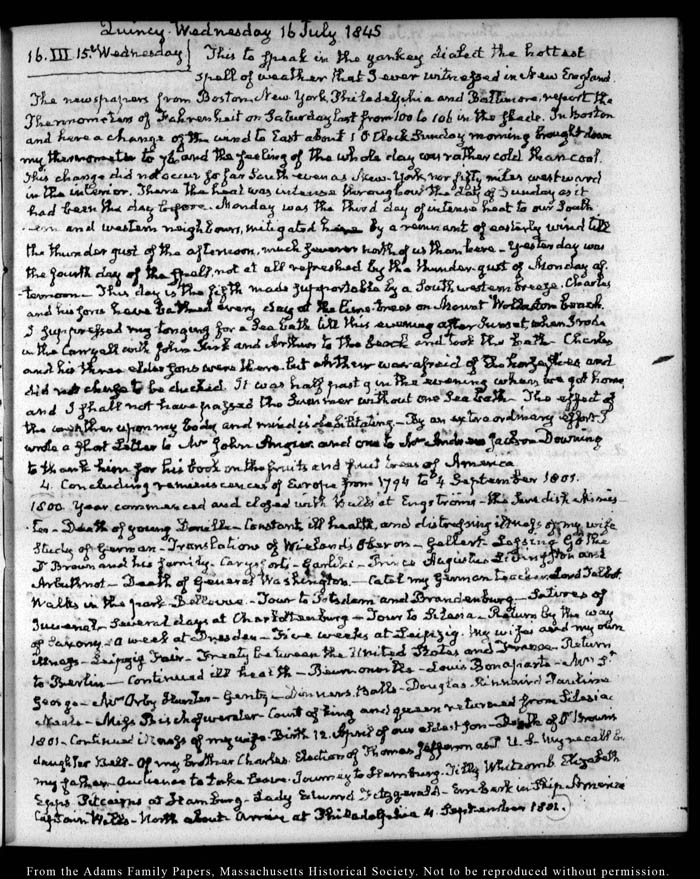 Quincy Wednesday 16 July 1845
16. III. 15. Wednesday This to speak in the yankey dialect the hottest
spell of weather that I ever witnessed in New England.
The newspapers from Boston, New York, Philadelphia and Baltimore, report the
Thermometers of Fahrenheit on Saturday last from 100 to 106 in the shade. In Boston
and here a change of the wind to East about 1 O'Clock Sunday morning brought down
my thermometer to 76 and the feeling of the whole day was rather cold than cool.
This change did not occur so far South even as New-York nor fifty miles westward
in the interior. There the heat was intense throughout the day of Sunday as it
had been the day before. Monday was the third day of intense heat to our South
-ern and western neighbours, mitigated here by a remnant of easterly wind till
the thunder gust of the afternoon, much severer north of us than here - Yesterday was
the fourth day of the spell, not at all refreshed by the thunder-gust of Monday af
-ternoon - This day is the fifth made supportable by a Southwestern breeze. Charles
and his sons have bathed every day at the lime-trees on Mount Wollaston beach.
I suppressed my longing for a Sea bath till this evening after Sunset, when I rode
in the Carryall with John Kirk and Arthur to the beach and took the bath. Charles
and his three elder sons were there. but Arthur was afraid of the horseflies and
did not choose to be ducked. It was half past 9 in the evening when we got home,
and I shall not have passed the Summer without one Sea bath. The effect of
the weather upon my body and mind is debilitating - By an extraordinary effort I
wrote a short Letter to Mr John Angier and one to Mr Andrew Jackson Downing
to thank him for his book on the fruits and fruit trees of America
4. Concluding reminiscences of Europe from 1794 to 4 September 1801.
1800. Year commenced and closed with Balls at Engströms - the Swedish Minis
-ter - Death of young - Constant ill health, and distressing illness of my wife
Study of German - Translation of Wieland's Oberon - Gellert - Lessing Göthe
Dr Brown and his family - Carysfort - Garlike - Prince Augustus - Livingston and
Arbuthnot - Death of General Washington - Catel my German teacher, Lord Talbot.
Walks in the park - Bellevue - Tour to Potsdam and Brandenburg - Satires of
Juvenal - Several days at Charlottenburg - Tour to Silesia - Return by the way
of Saxony - a week at Dresden - Five weeks at Leipzig. My wife's and my own
illness - Leipzig Fair - Treaty between the United States and France. Return
to Berlin - Continued ill health - Beurnonville - Louis Bonaparte - Mr St
George - Mr Orby Hunter - Gentz - Dinners. Balls - Douglas. Kinnaird Pauline
Neale - Miss Bischofwerder - Court of King and queen returned from Silesia
1801 - Continued illness of my wife. Birth 12. April of our eldest son - Death of Dr Brown's
daughter Bell - Of my brother Charles. Election of Thomas Jefferson as P. U.S. My recall by
my father - Audience to take leave. Journey to Hamburg. Tilly Whitcomb Elizabeth
Epps Pitcairns at Hamburg - Lady Edward Fitzgerald - Embark in Ship America
Captain Wills - North about Arrive at Philadelphia 4. September 1801.
From the Adams Family Papers, Massachusetts Historical Society. Not to be reproduced without permission.